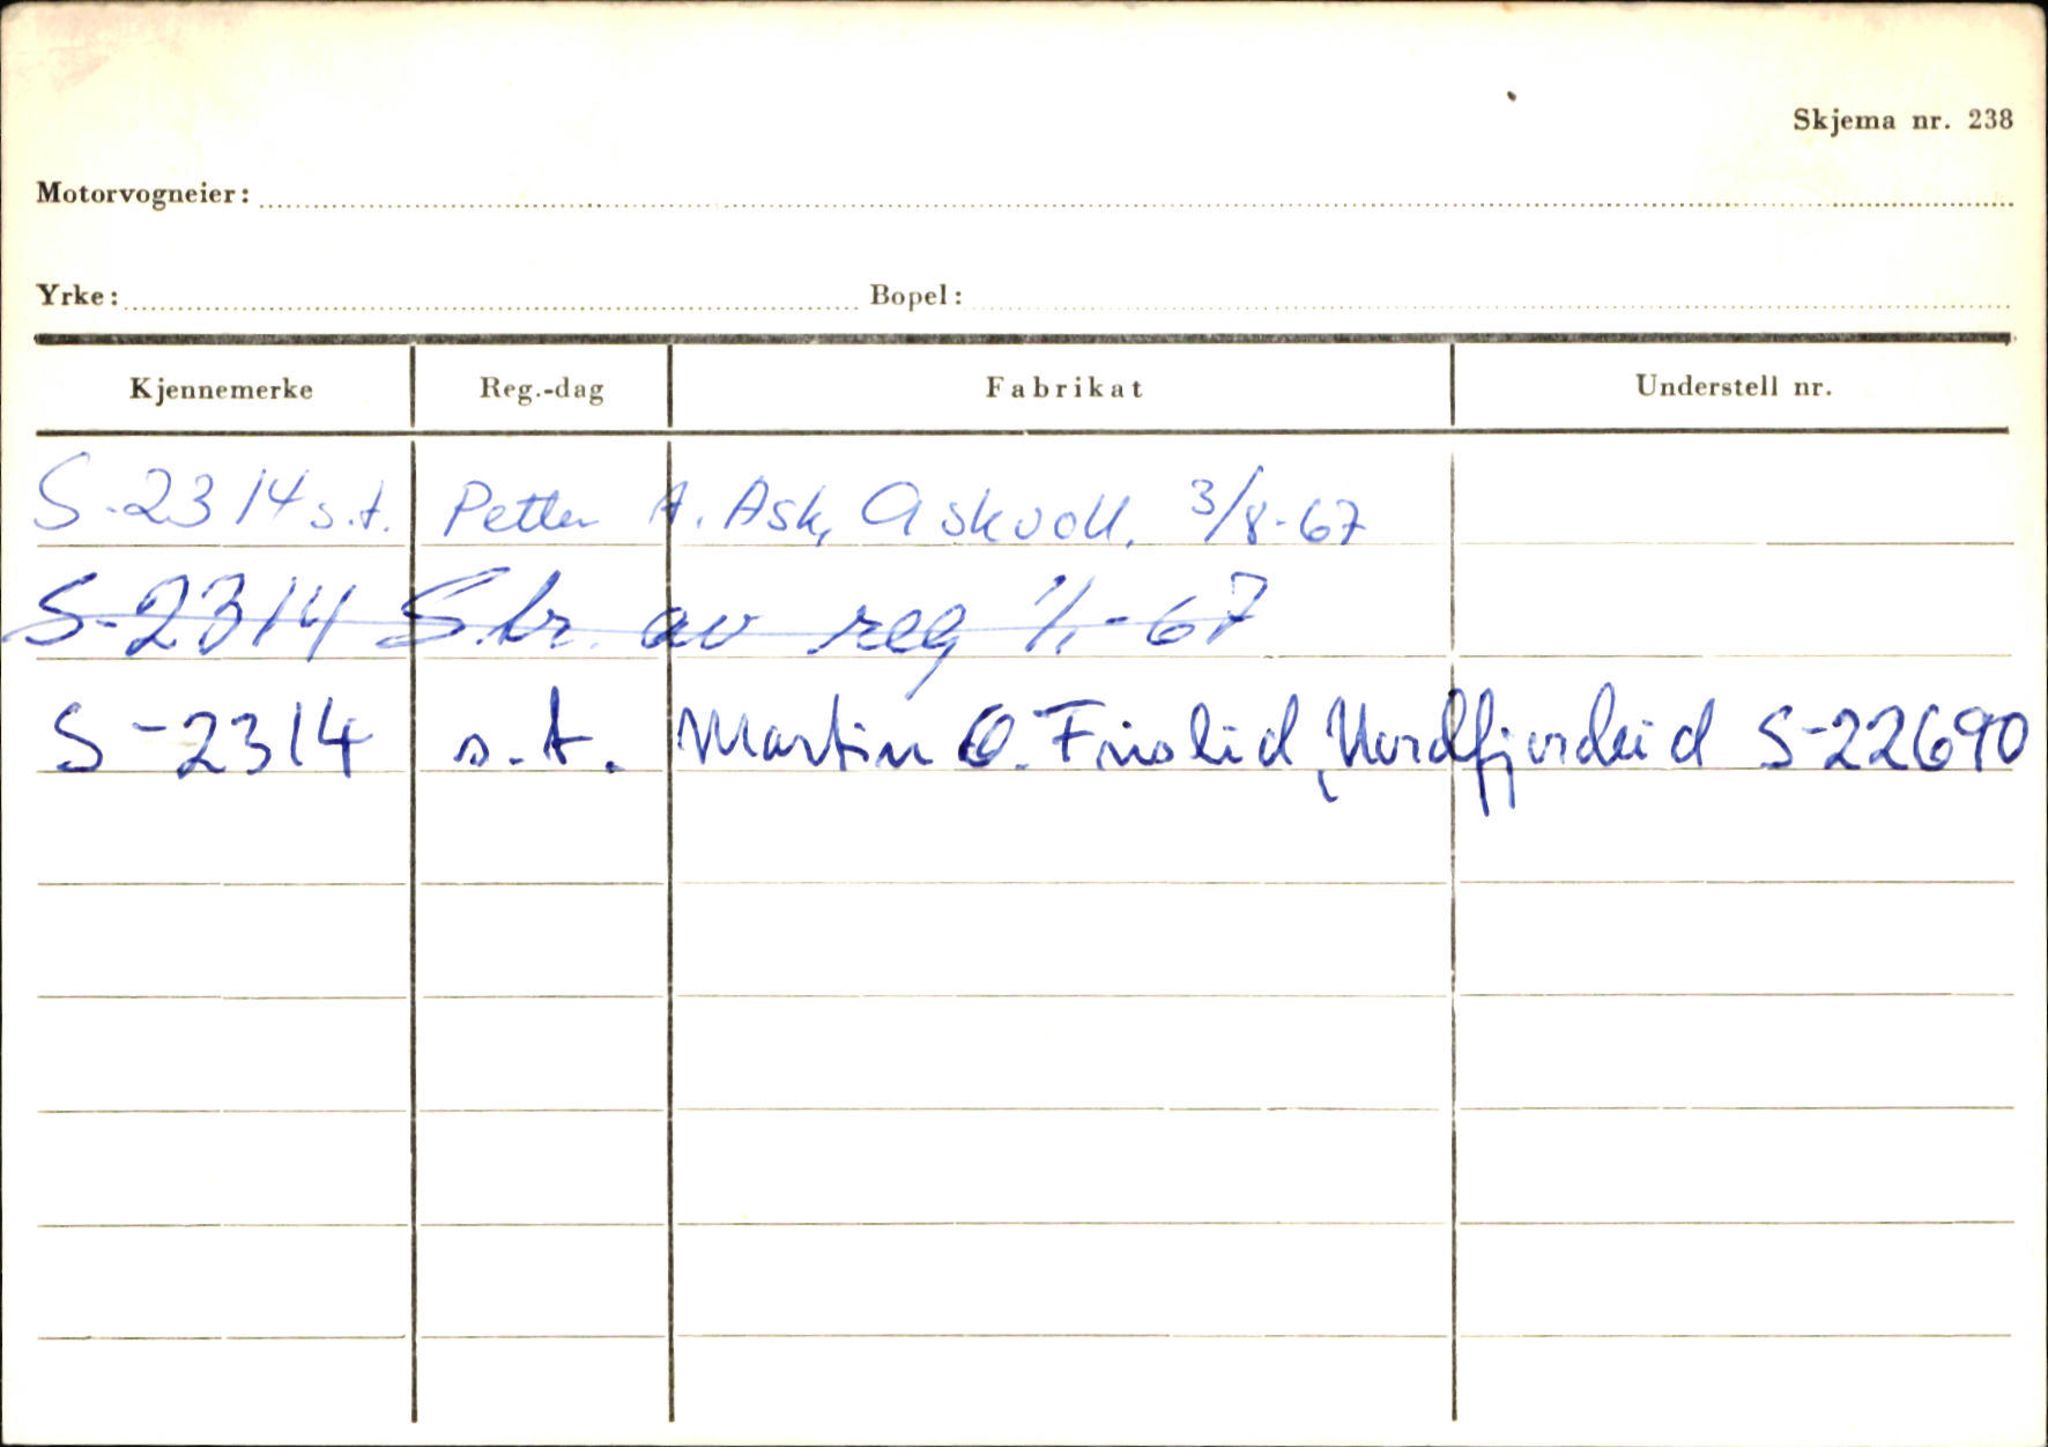 Skjema nr. 238
Motorvogneier:
Yrke: Bopel:
Kjennemerke Reg.-dag Fabrikat Understell nr.
S-2314 s.t. Petter A. Ask, Askvoll. 3/8-67
S-2314 S.br. av reg 1/1-67
S-2314 s.t. Martin O. Frislid, Nordfjordeid S-22690